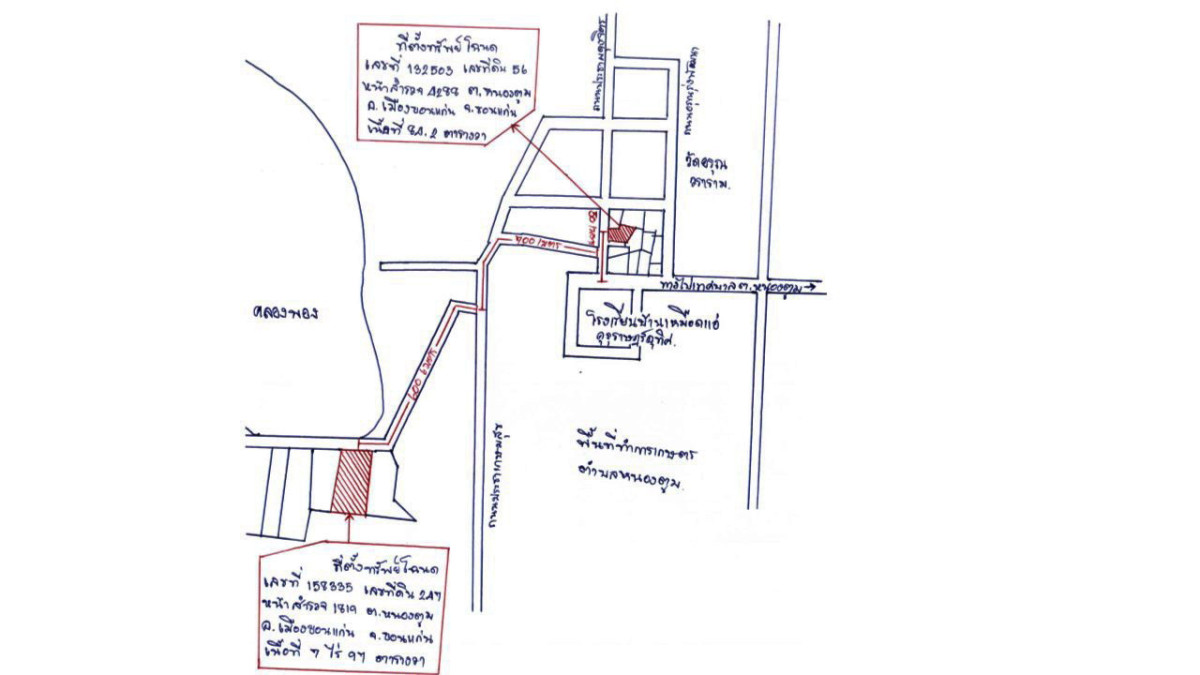 ที่ตั้งทรัพย์โฉนด
เลขที่ 132503 เลขที่ดิน 56
หน้าสำรวจ 4288 ต.หนองตูม
อ.เมืองขอนแก่น จ.ขอนแก่น
เนื้อที่ 84.2 ตารางวา
วัดอรุณ
วราราม.
80 เมตร
400 เมตร
ทางไปเทศบาลต.หนองตูม
คลองพอง
โรงเรียนบ้านเหมือดแอ่
600 เมตร
พื้นที่ทำการเกษตร
ตำบลหนองตูม.
ที่ตั้งทรัพย์โฉนด
เลขที่ 158335 เลขที่ดิน 247
หน้าสำรวจ 1819 ต.หนองตูม
อ.เมืองขอนแก่น จ.ขอนแก่น
เนื้อที่ 7 ไร่ 97 ตารางวา